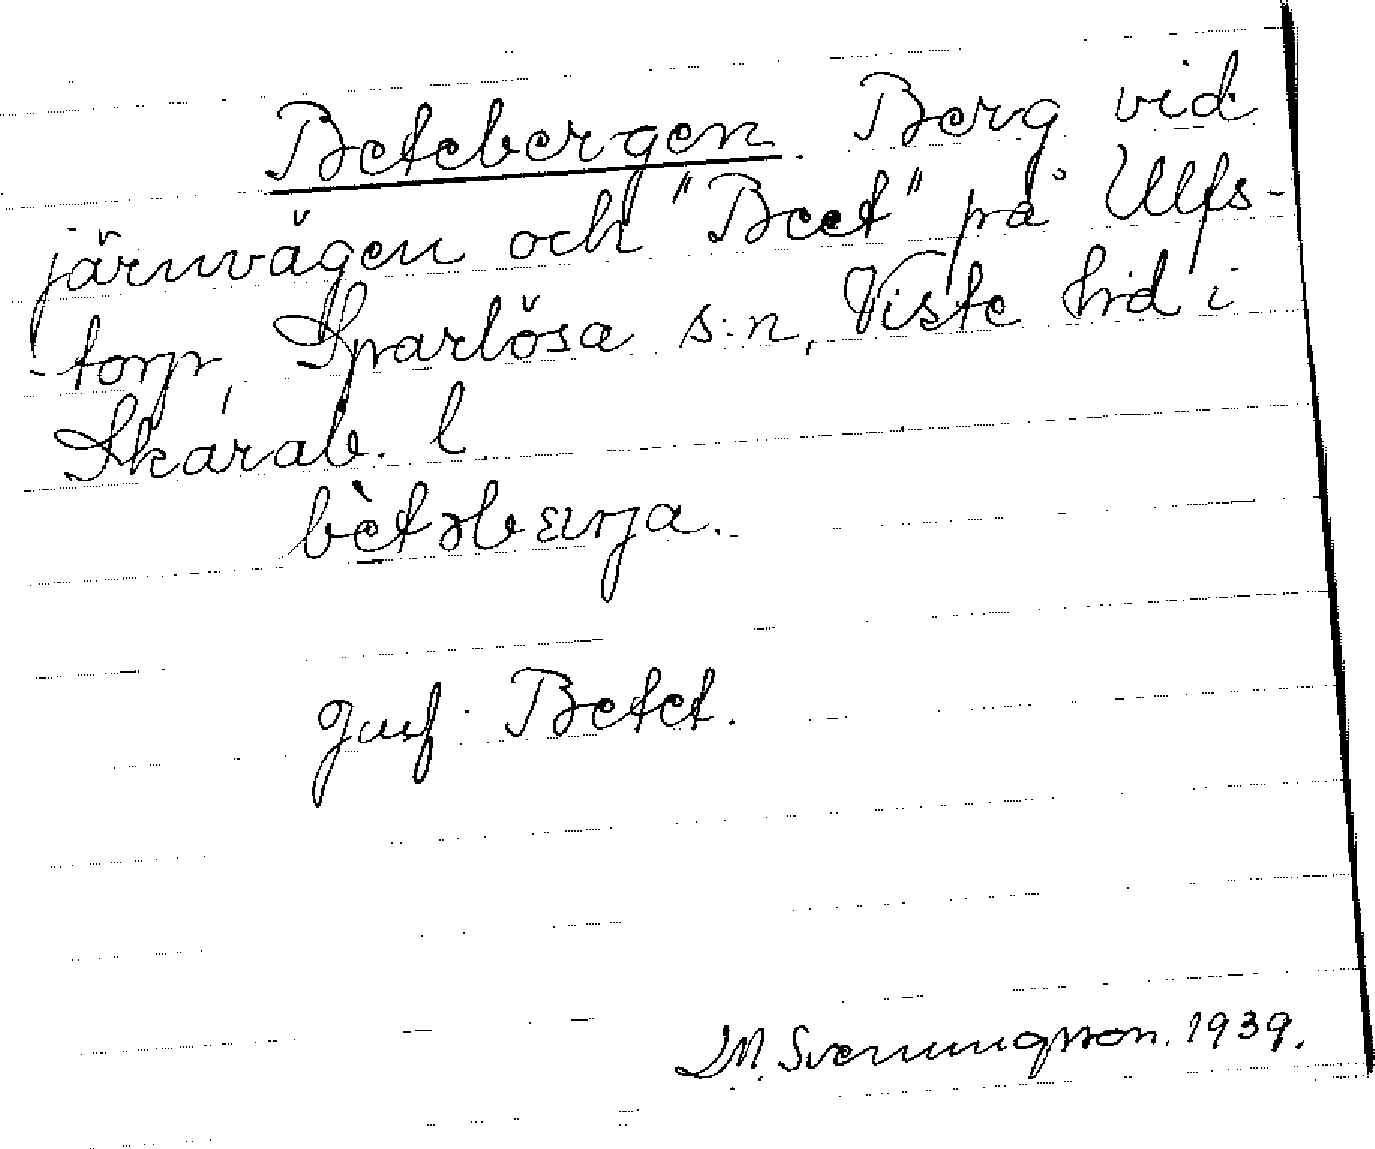 Betebergen. Berg vid
järnvägen och "Beet" på Ulfs-
-torp, Sparlösa s:n, Viste hrd i
Skarab. l
bètəbærja.
Jmf. Betet.
M. Svenungsson. 1939.